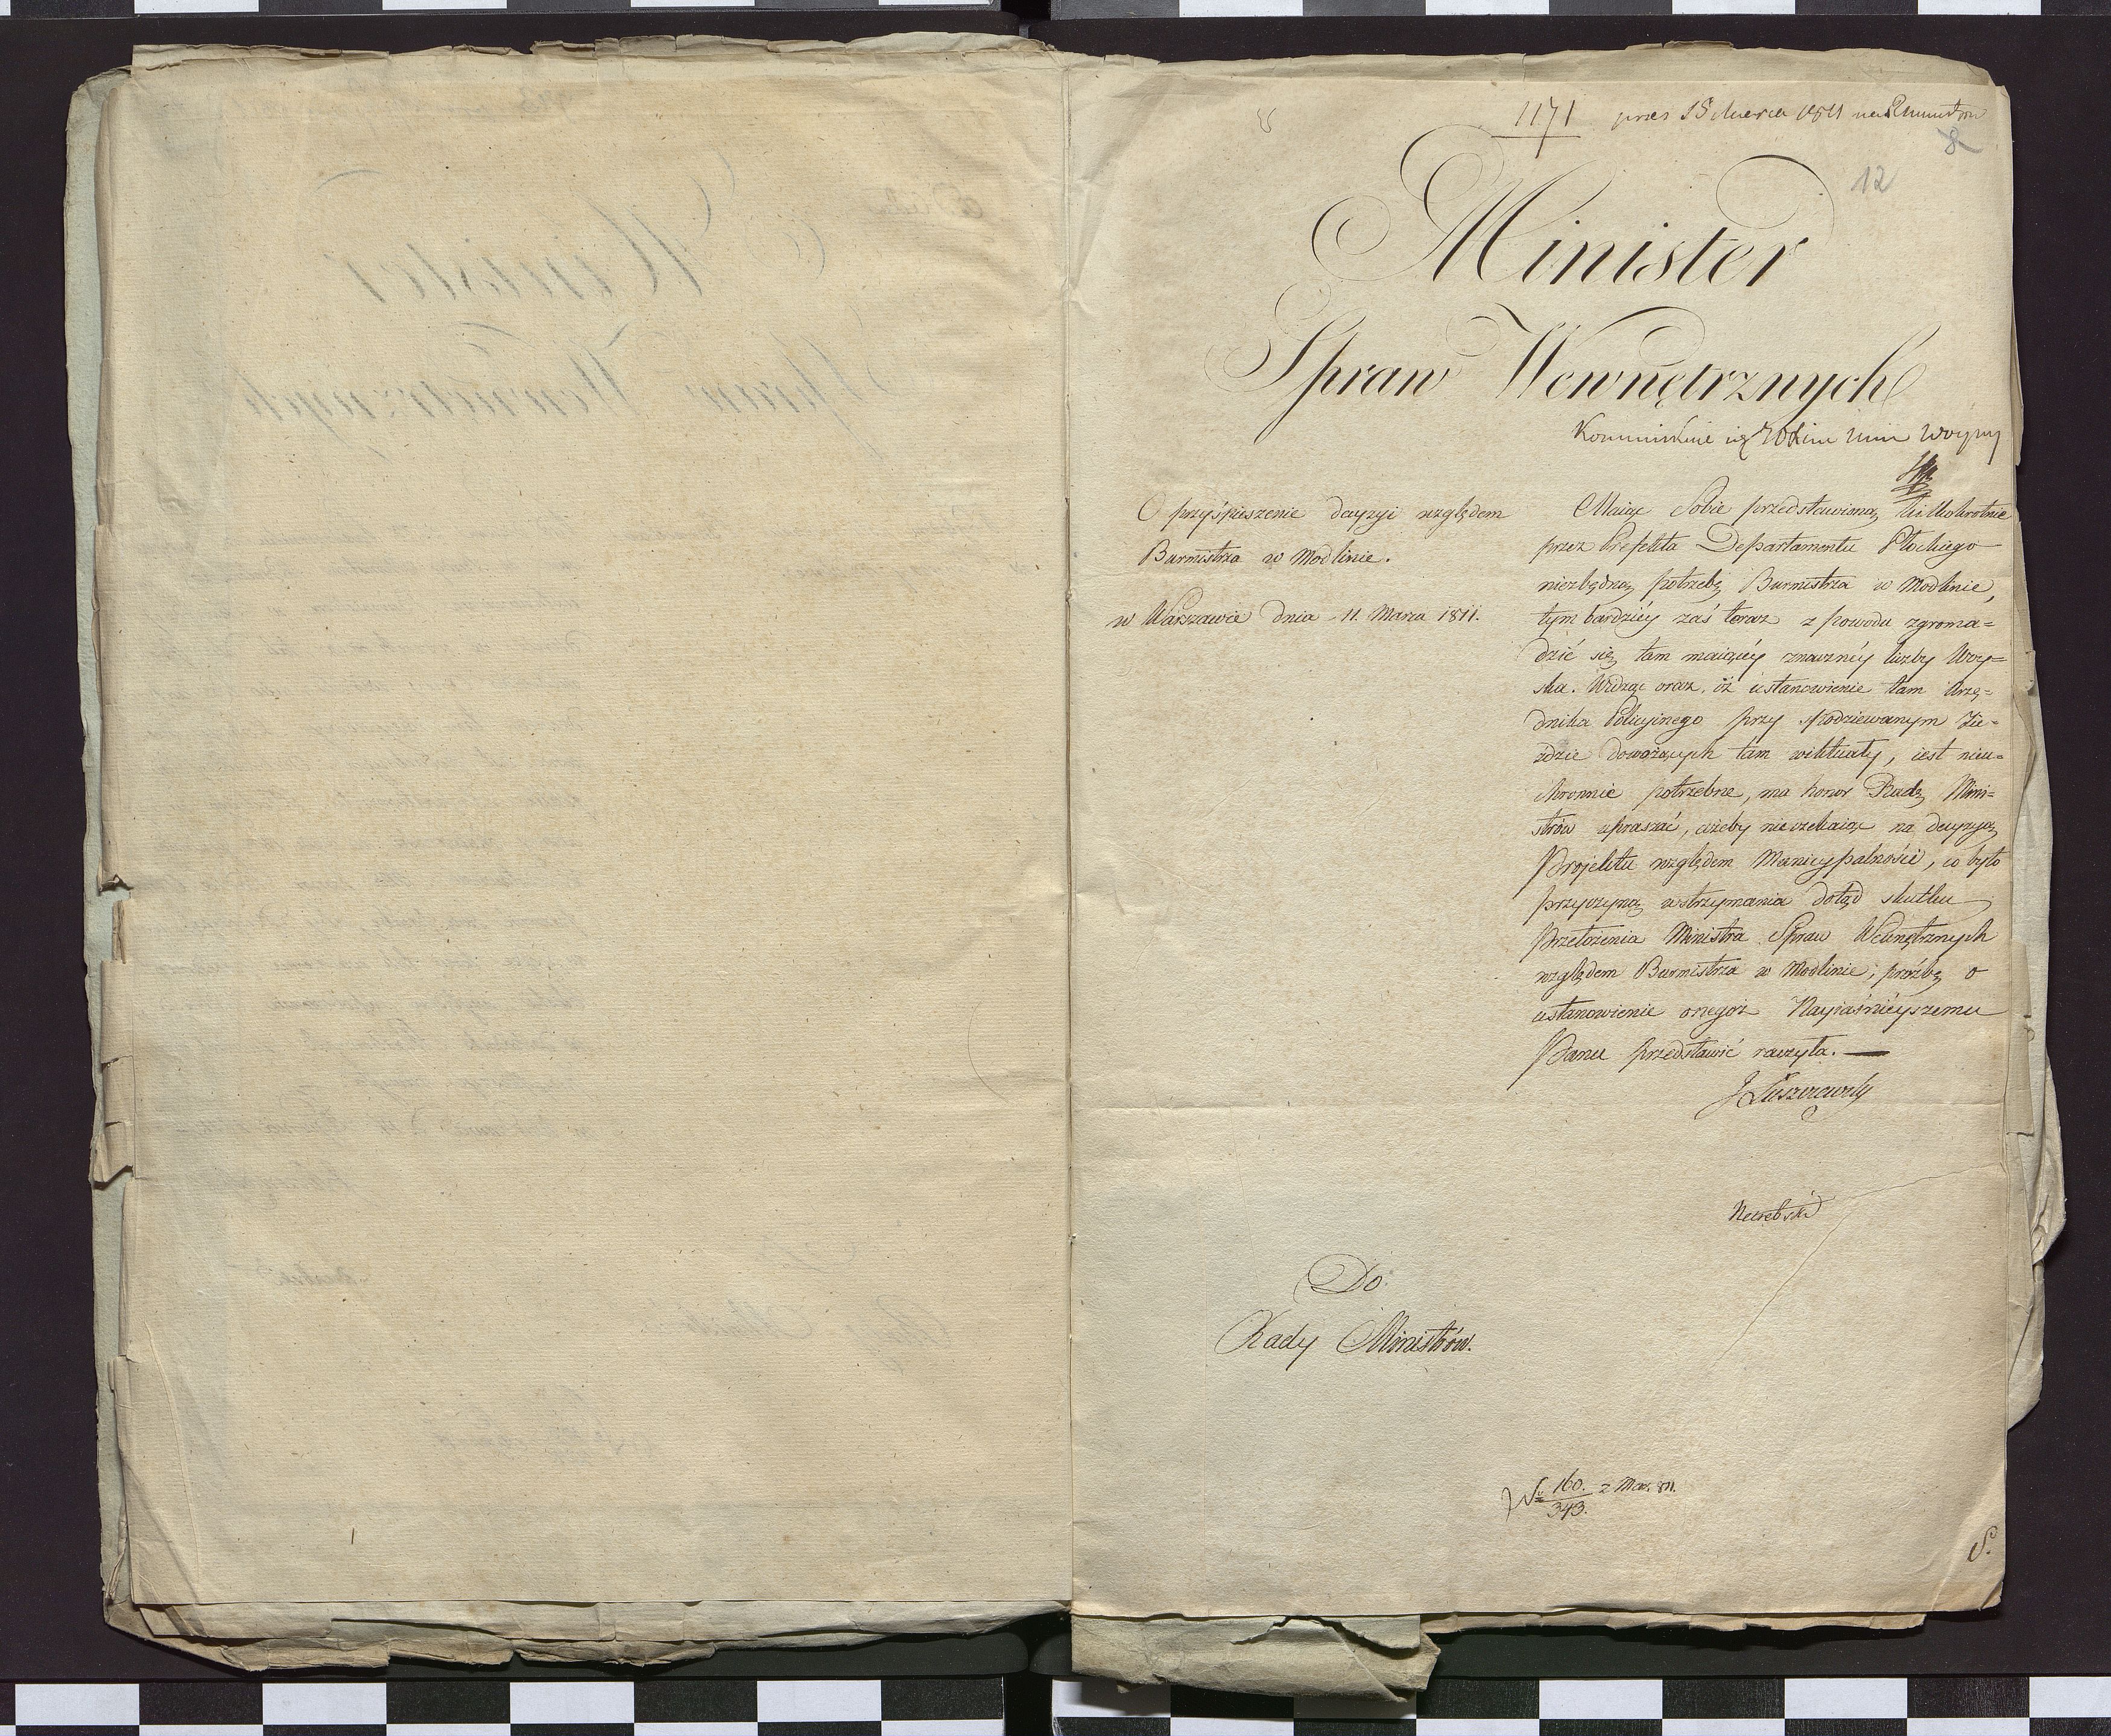 1171 prez 15 Marca 1811
8
12
Minister
Spraw Wewnętrznych
Woyny
O przyśpieszenie decyzyi względem
Burmistrza w Modlinie.
w Warszawie dnia 11. Marca 1811.
Maiąc Sobie przedstawioną kilkokrotnie
przez Prefekta Departamentu Płockiego
niezbędną potrzebę Burmistrza w Modlinie,
tym bardziéy zaś teraz z powodu zgroma=
dzić się tam maiącéy znacznéy liczby Woy=
ska. Widząc oraz, iż ustanowienie tam Urzę=
dnika Policyinego przy spodziewanym Zie=
zdzie dowożących tam wiktuały, iest nieu=
chronnie potrzebne, ma honor Radę Mini=
strów upraszać, ażeby nieczekaiąc na decyzyą
Projektu względem Municypalności, co było
przyczyną wstrzymania dotąd skutku
Przełożenia Ministra Spraw Wewnętrznych
względem Burmistrza w Modlinie, prożbę o
ustanowienie onegoż Nayiaśnieyszemu
Panu przedstawić raczyła.
J Łuszczewsky
Do
Rady Ministrów.
N 160. z Mar. 811.
343.
S.